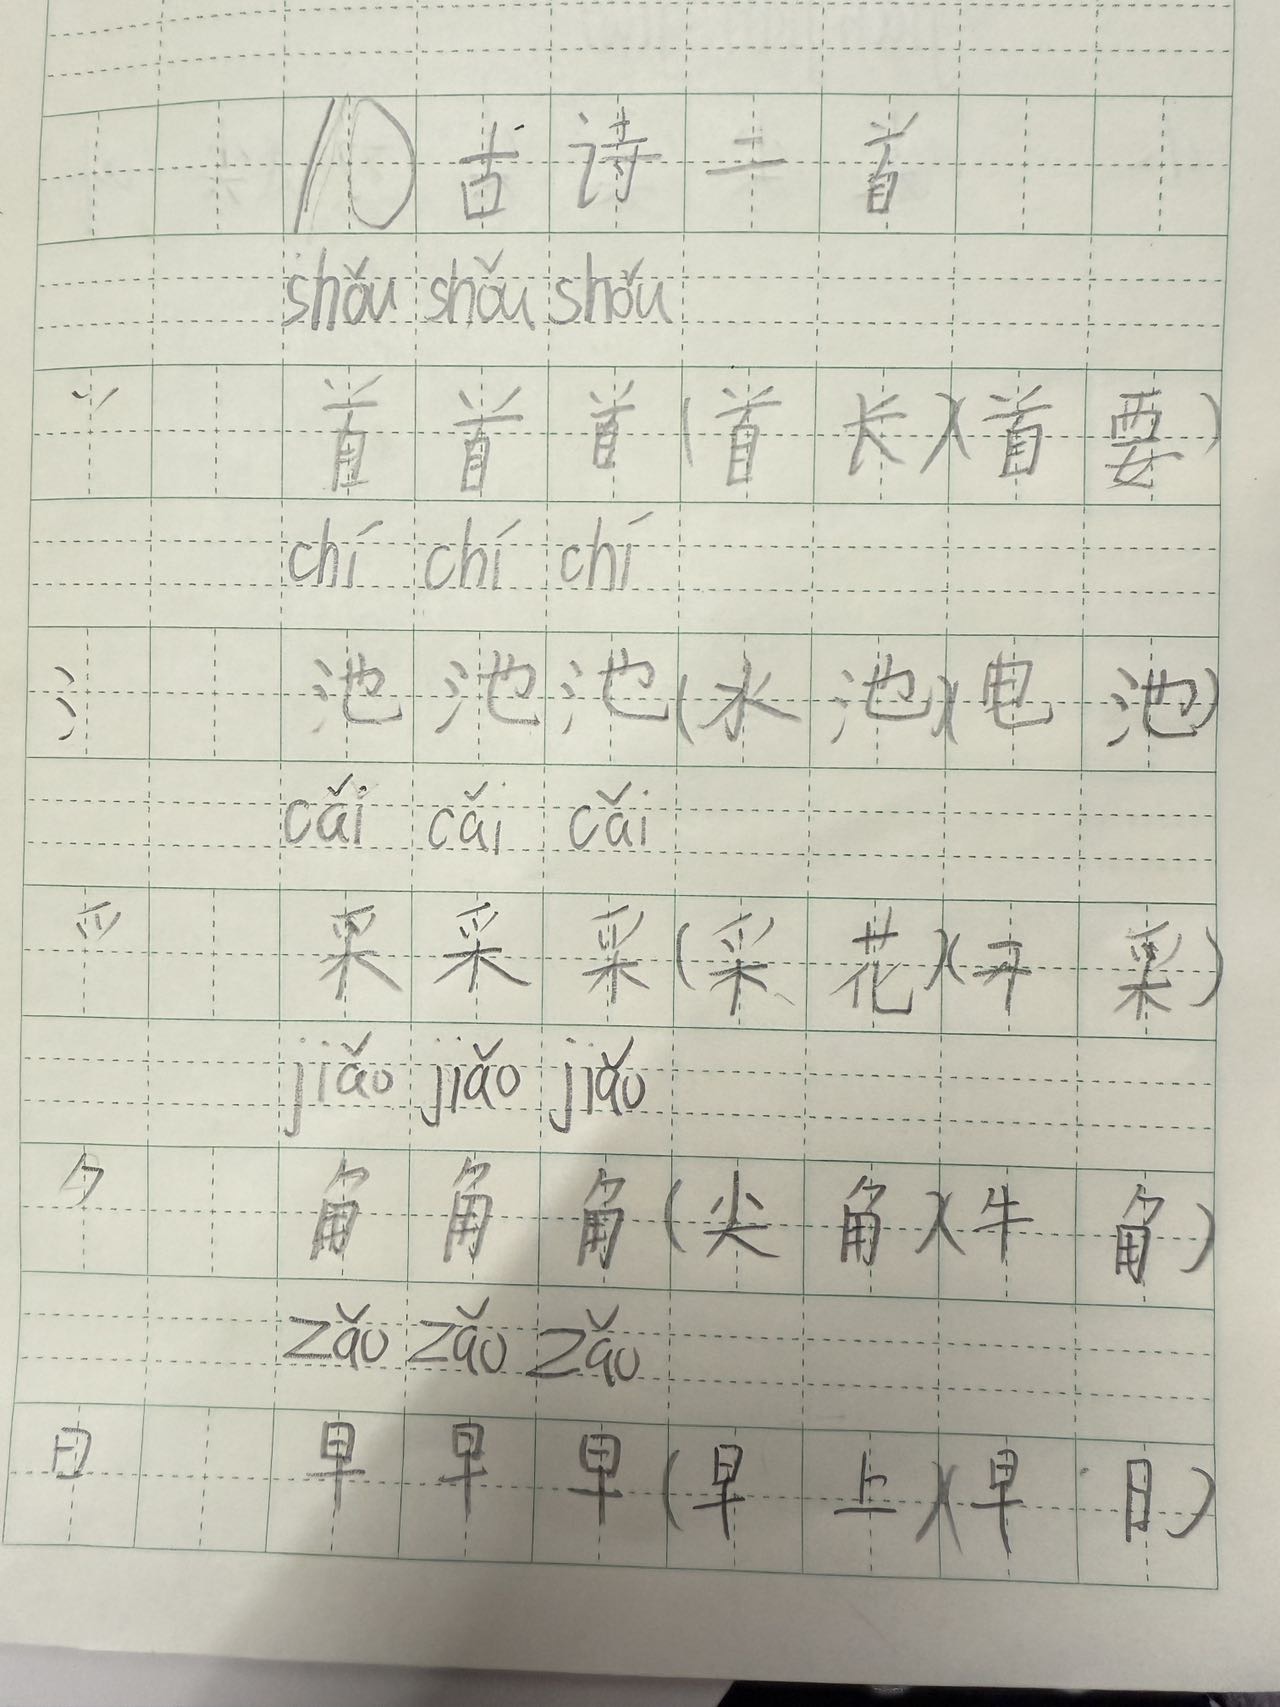 10 古诗二首
shǒu shǒu shǒu
丷 首首首(首长)(首要)
chí chí chí
氵 池池池(水池)(电池)
cǎi cǎi cǎi
爫 采采采(采花)(开采)
jiǎo jiǎo jiǎo
⺈ 角角角(尖角)(牛角)
zǎo zǎo zǎo
日 早早早(早上)(早日)